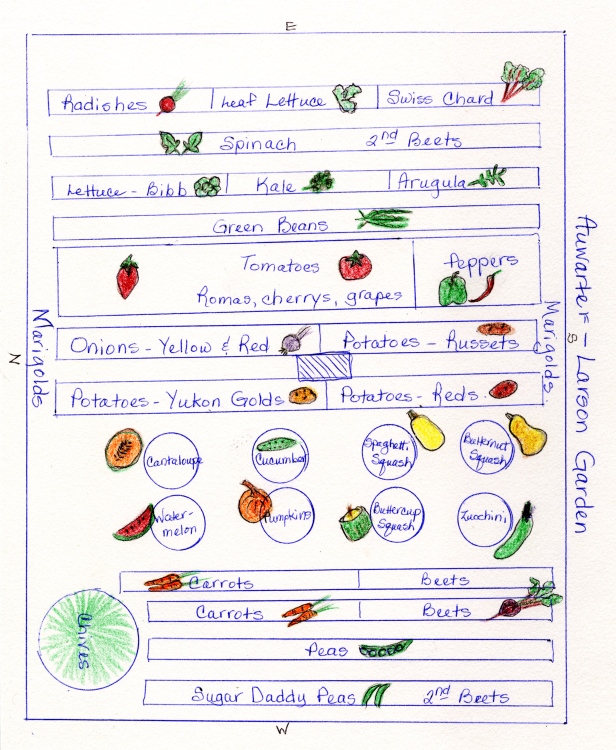 E
Radishes
Leaf Lettuce
Swiss Chard
Spinach
2nd Beets
Lettuce - Bibb
Kale
Arugula
Green Beans
Tomatoes
Romas, cherrys, grapes
Peppers
Marigolds
N
Marigolds
S
Auwarter - Larson Garden
Onions - Yellow & Red
Potatoes - Russets
Potatoes - Yukon Golds
Potatoes - Reds
Cantaloupe
Cucumber
Spaghetti
Squash
Butternut
Squash
Water-
melon
Pumpkins
Buttercup
Squash
Zucchini
Carrots
Beets
Carrots
Beets
Chives
Peas
Sugar Daddy Peas
2nd Beets
W